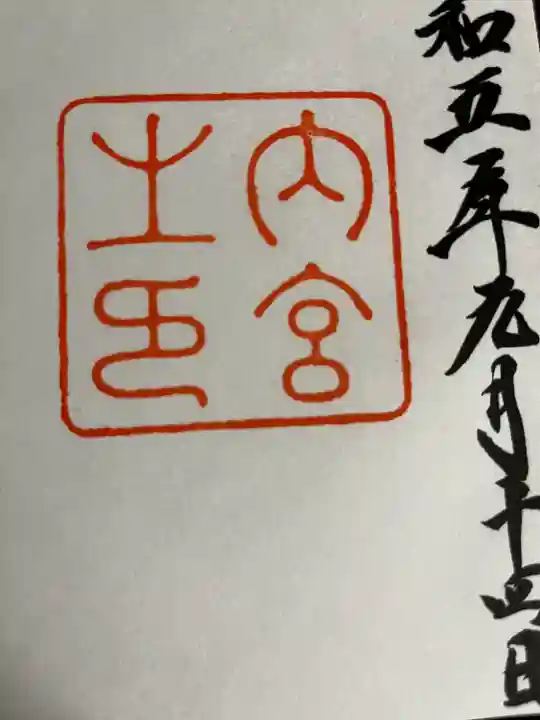 和五年九月十四日
内宮
之印